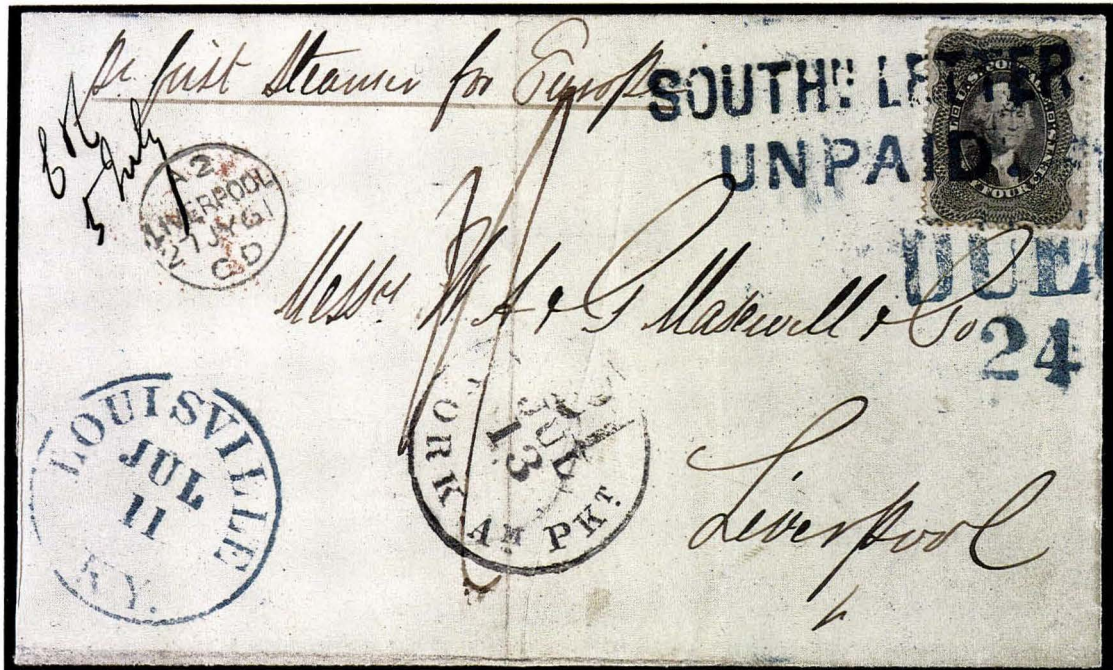 pr first Steamer for Europe
SOUTHN. LETTER
UNPAID.
U.S. POSTAGE
TWENTY FOUR CENTS
5 July
A 2
LIVERPOOL
27 JY 61
C D
DUE
24
Messrs W A & G Maxwell & Co
Liverpool
LOUISVILLE
JUL
11
KY.
YORK AM PKT.
JUL
13
24